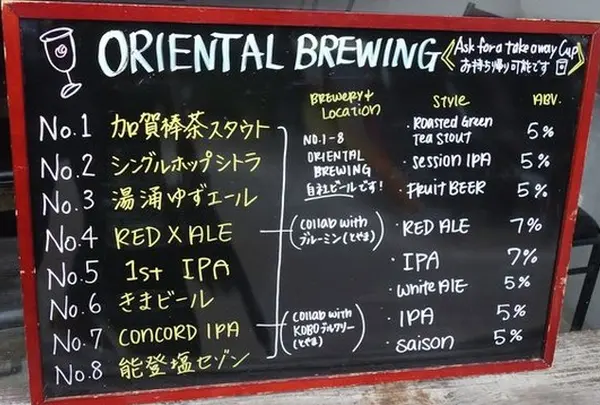 ORIENTAL BREWING
Ask for a take away Cup
お持ち帰り可能です
BREWERY & LOCATION
STYLE
ABV.
No.1 加賀棒茶スタウト
No.2 シングルホップシトラ
No.3 湯涌ゆずエール
No.4 RED X ALE
No.5 1st IPA
No.6 きまビール
No.7 CONCORD IPA
No.8 能登塩セゾン
NO.1-8
ORIENTAL
BREWING
自社ビールです!
(collab with
ブルーミン(とやま)
(collab with
KOBOブルワリー
(とやま)
・Roasted Green
Tea STOUT 5%
・session IPA 5%
・Fruit BEER 5%
・RED ALE 7%
・IPA 7%
・White AlE 5%
・IPA 5%
・saison 5%